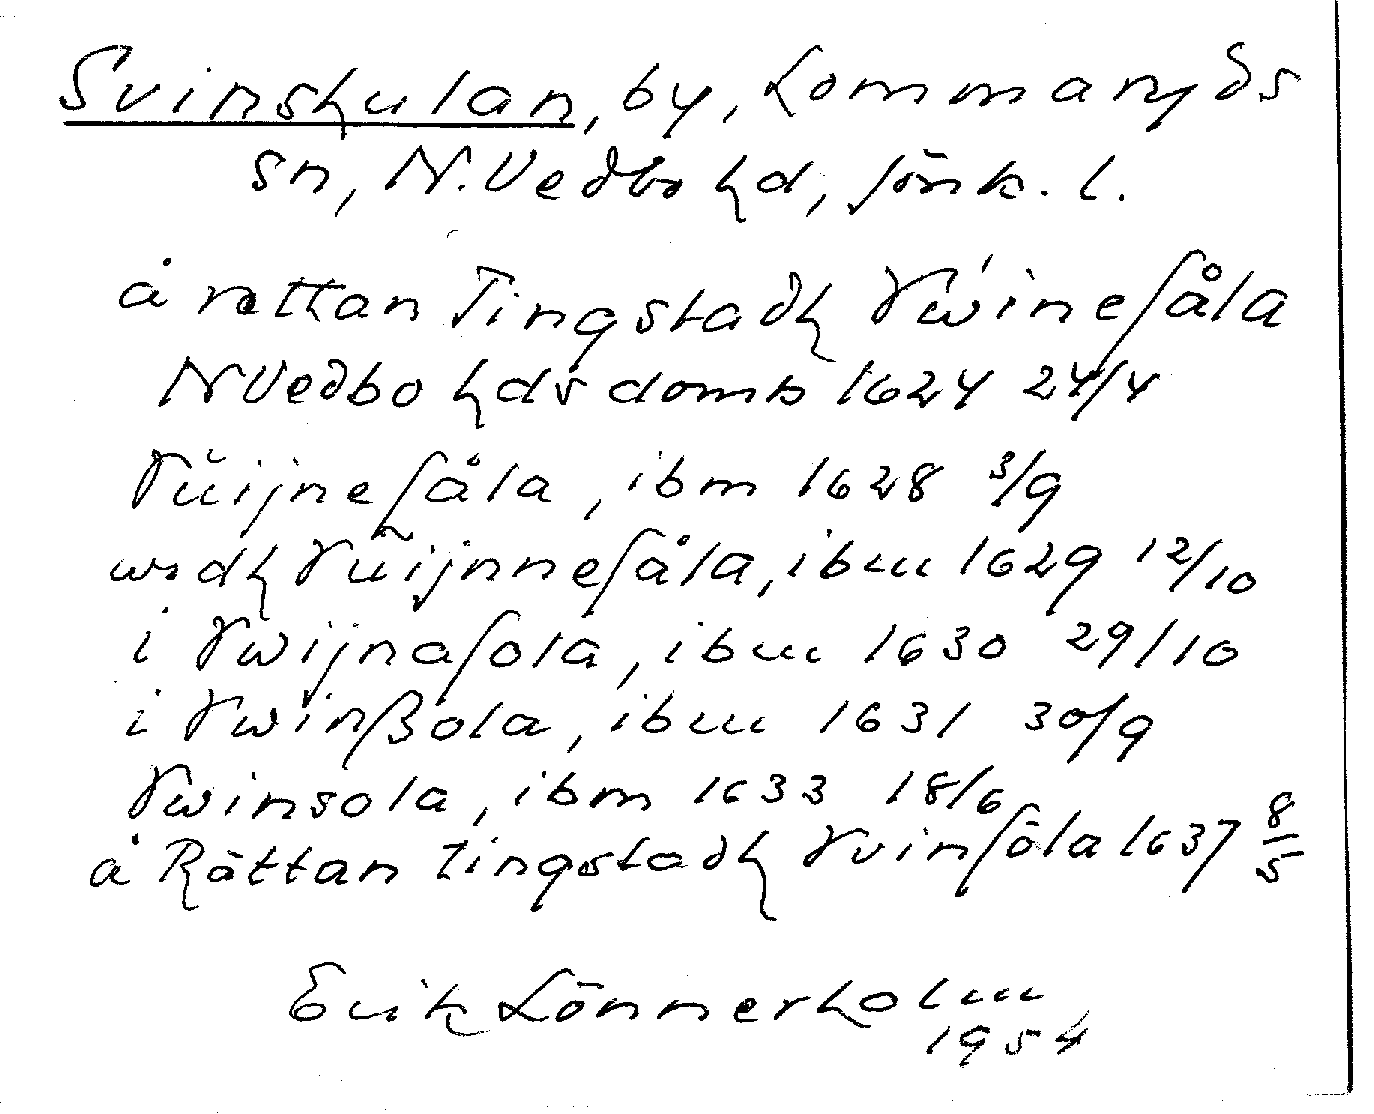 Svinshulan, by, Lommaryds
sn, N. Vedbo hd, Jönk. l.
å rettan Tingstadh Swinesåla
N Vedbo hds domb 1624 24/4
Sŭijnesåla, ibm 1628 3/9
widh Sŭijnnesåla, ibm 1629 12/10
i Swijnasola, ibm 1630 29/10
i Swinßola, ibm 1631 30/9
Swinsola, ibm 1633 18/6
å Rättan tingstadh Svinsåla 1637 8/5
Erik Lönnerholm
1954